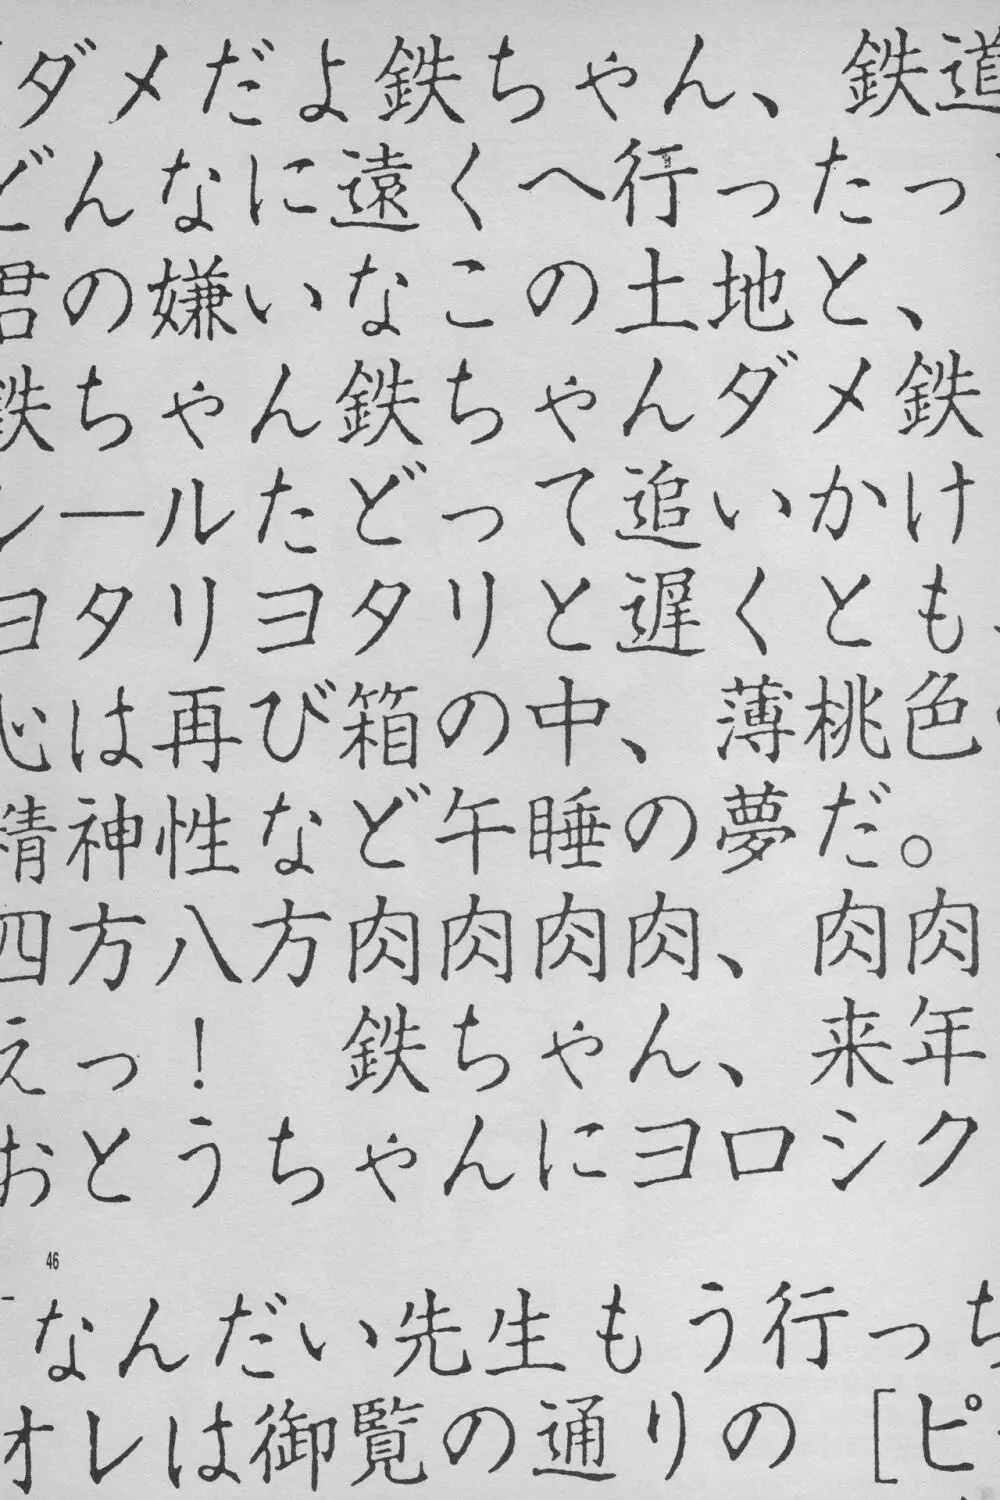 「ダメだよ鉄ちゃん、鉄道
どんなに遠くへ行ったっ
君の嫌いなこの土地と、
鉄ちゃん鉄ちゃんダメ鉄
レールたどって追いかけ
ヨタリヨタリと遅くとも
心は再び箱の中、薄桃色
精神性など午睡の夢だ。
四方八方肉肉肉肉、肉肉
えっ！　鉄ちゃん、来年
おとうちゃんにヨロシク
46
「なんだい先生もう行っち
オレは御覧の通りの［ピ